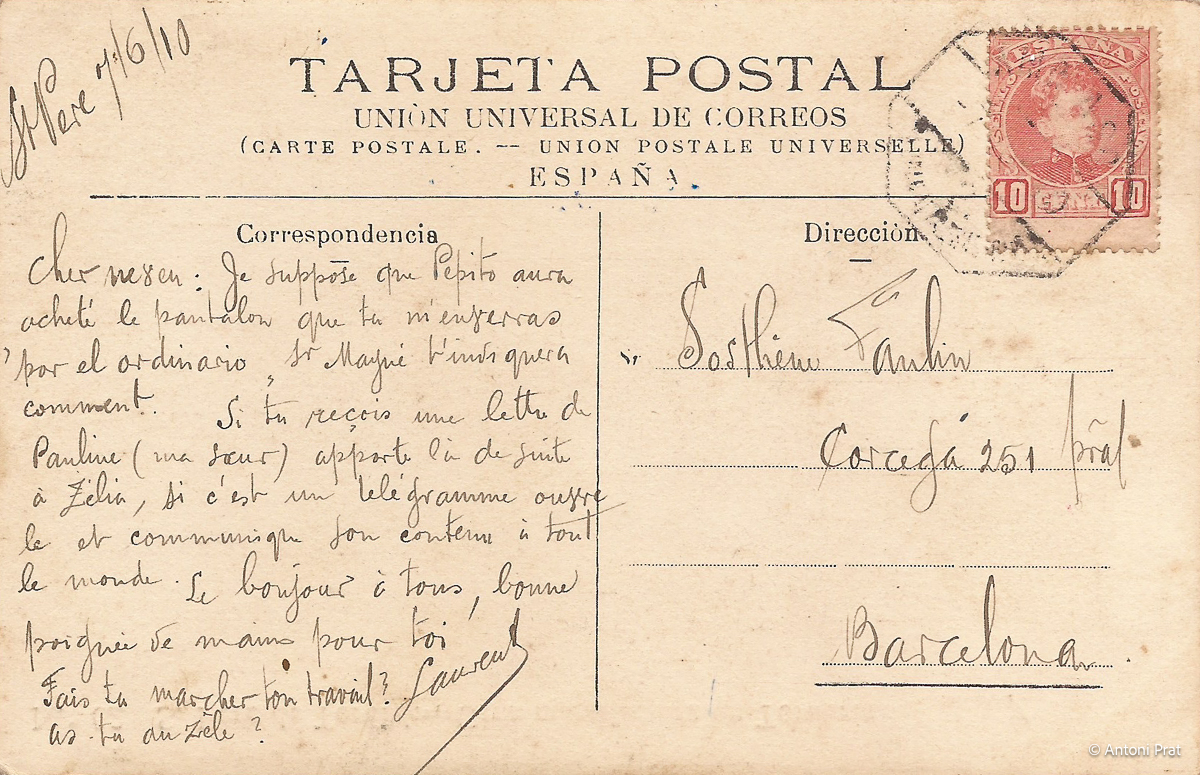 St Pere 7/6/10
TARJETA POSTAL
UNIÓN UNIVERSAL DE CORREOS
(CARTE POSTALE. -- UNION POSTALE UNIVERSELLE)
ESPAÑA
ESPAÑA
10 CENT. 10
Correspondencia
Cher neveu : Je suppose que Pepito aura
acheté le pantalon que tu m'enverras
"por el ordinario" Sr Mayné t'indiquera
comment. Si tu reçois une lettre de
Pauline (ma sœur) apporte la de suite
à Zélia, si c'est un télégramme ouvre
le et communique son contenu à tout
le monde. Le bonjour à tous, bonne
poignée de mains pour toi
Laurent
Fais tu marcher ton travail?
as-tu du zèle?
Dirección
Sr. Sosthène Faulin
Corcega 251 pral
Barcelona.
© Antoni Prat